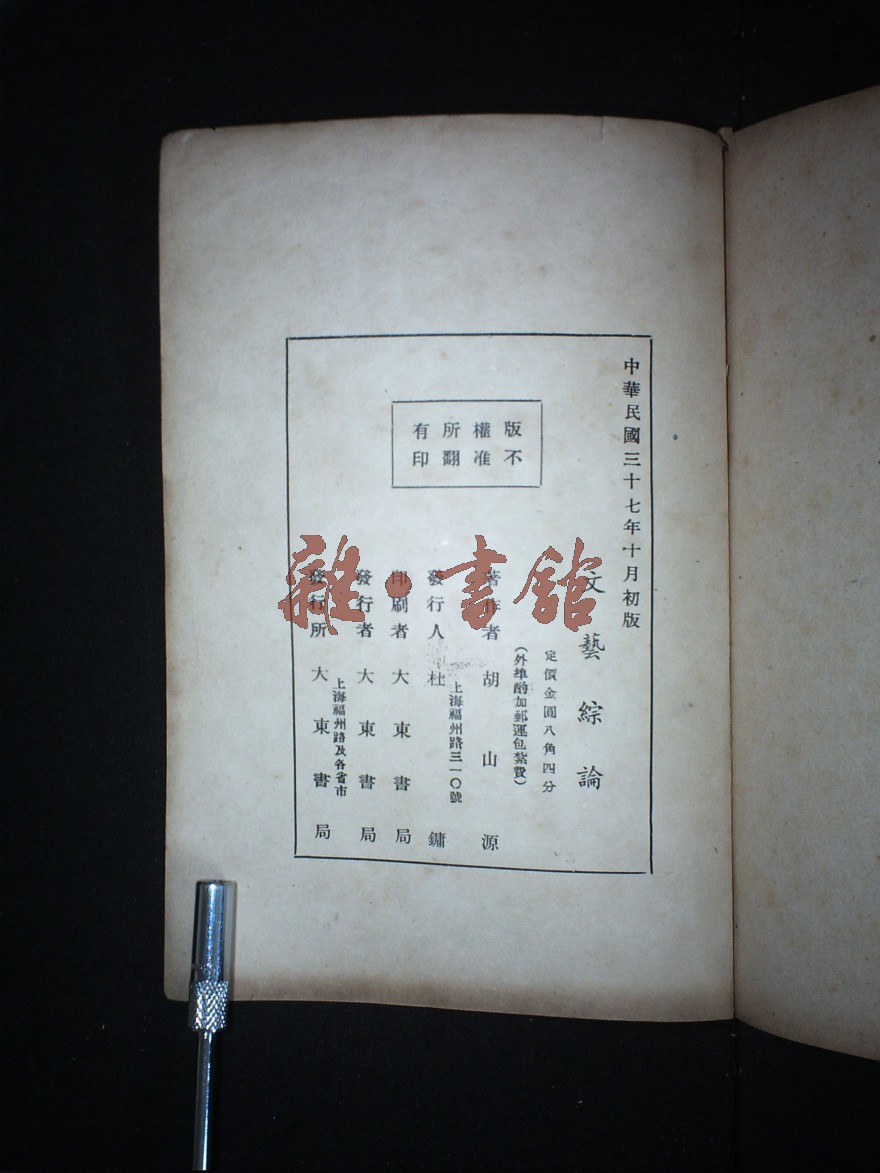 中華民國三十七年十月初版
文藝綜論
定價金圓八角四分
(外埠酌加郵運包紮費)
著作者 胡山源
發行人 杜鏞
上海福州路三一〇號
印刷者 大東書局
發行者 大東書局
發行所 大東書局
上海福州路及各省市
版權所有
不准翻印
雜·書館